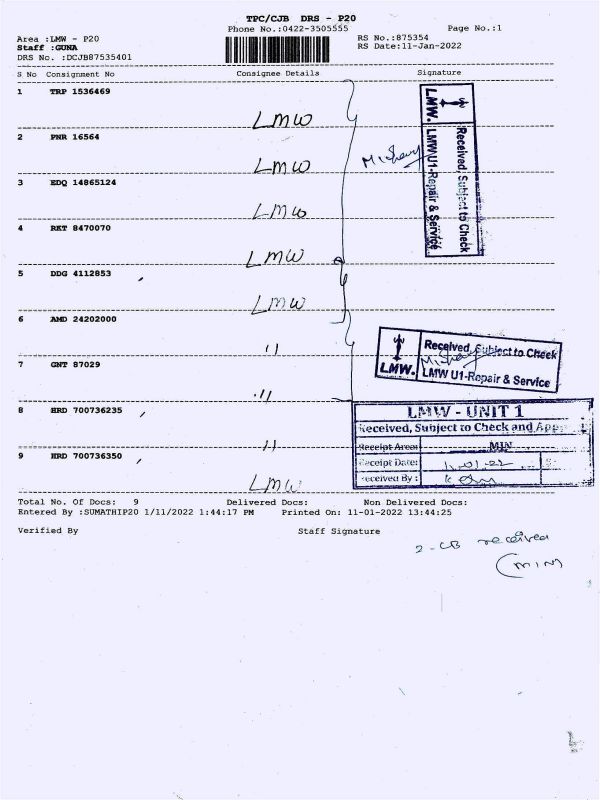 TPC/CJB DRS - P20
Phone No.:0422-3505555
Page No.:1
Area :LMW - P20
RS No.:875354
Staff :GUNA
RS Date:11-Jan-2022
DRS No. :DCJB87535401
S No Consignment No Consignee Details Signature
1 TRP 1536469
LMW
2 PNR 16564
LMW
3 EDQ 14865124
LMW
4 RKT 8470070
LMW
5 DDG 4112853
LMW
6 AMD 24202000
"
7 GNT 87029
"
8 HRD 700736235
"
9 HRD 700736350
LMW
LMW.
Received, Subject to Check
LMW U1-Repair & Service
LMW.
Received, Subject to Check
LMW U1-Repair & Service
LMW - UNIT 1
Received, Subject to Check and
Receipt Area: MIN
Receipt Date: 11.01.22
Received By :
Total No. Of Docs: 9 Delivered Docs: Non Delivered Docs:
Entered By :SUMATHIP20 1/11/2022 1:44:17 PM Printed On: 11-01-2022 13:44:25
Verified By Staff Signature
2-CB received
(MIN)